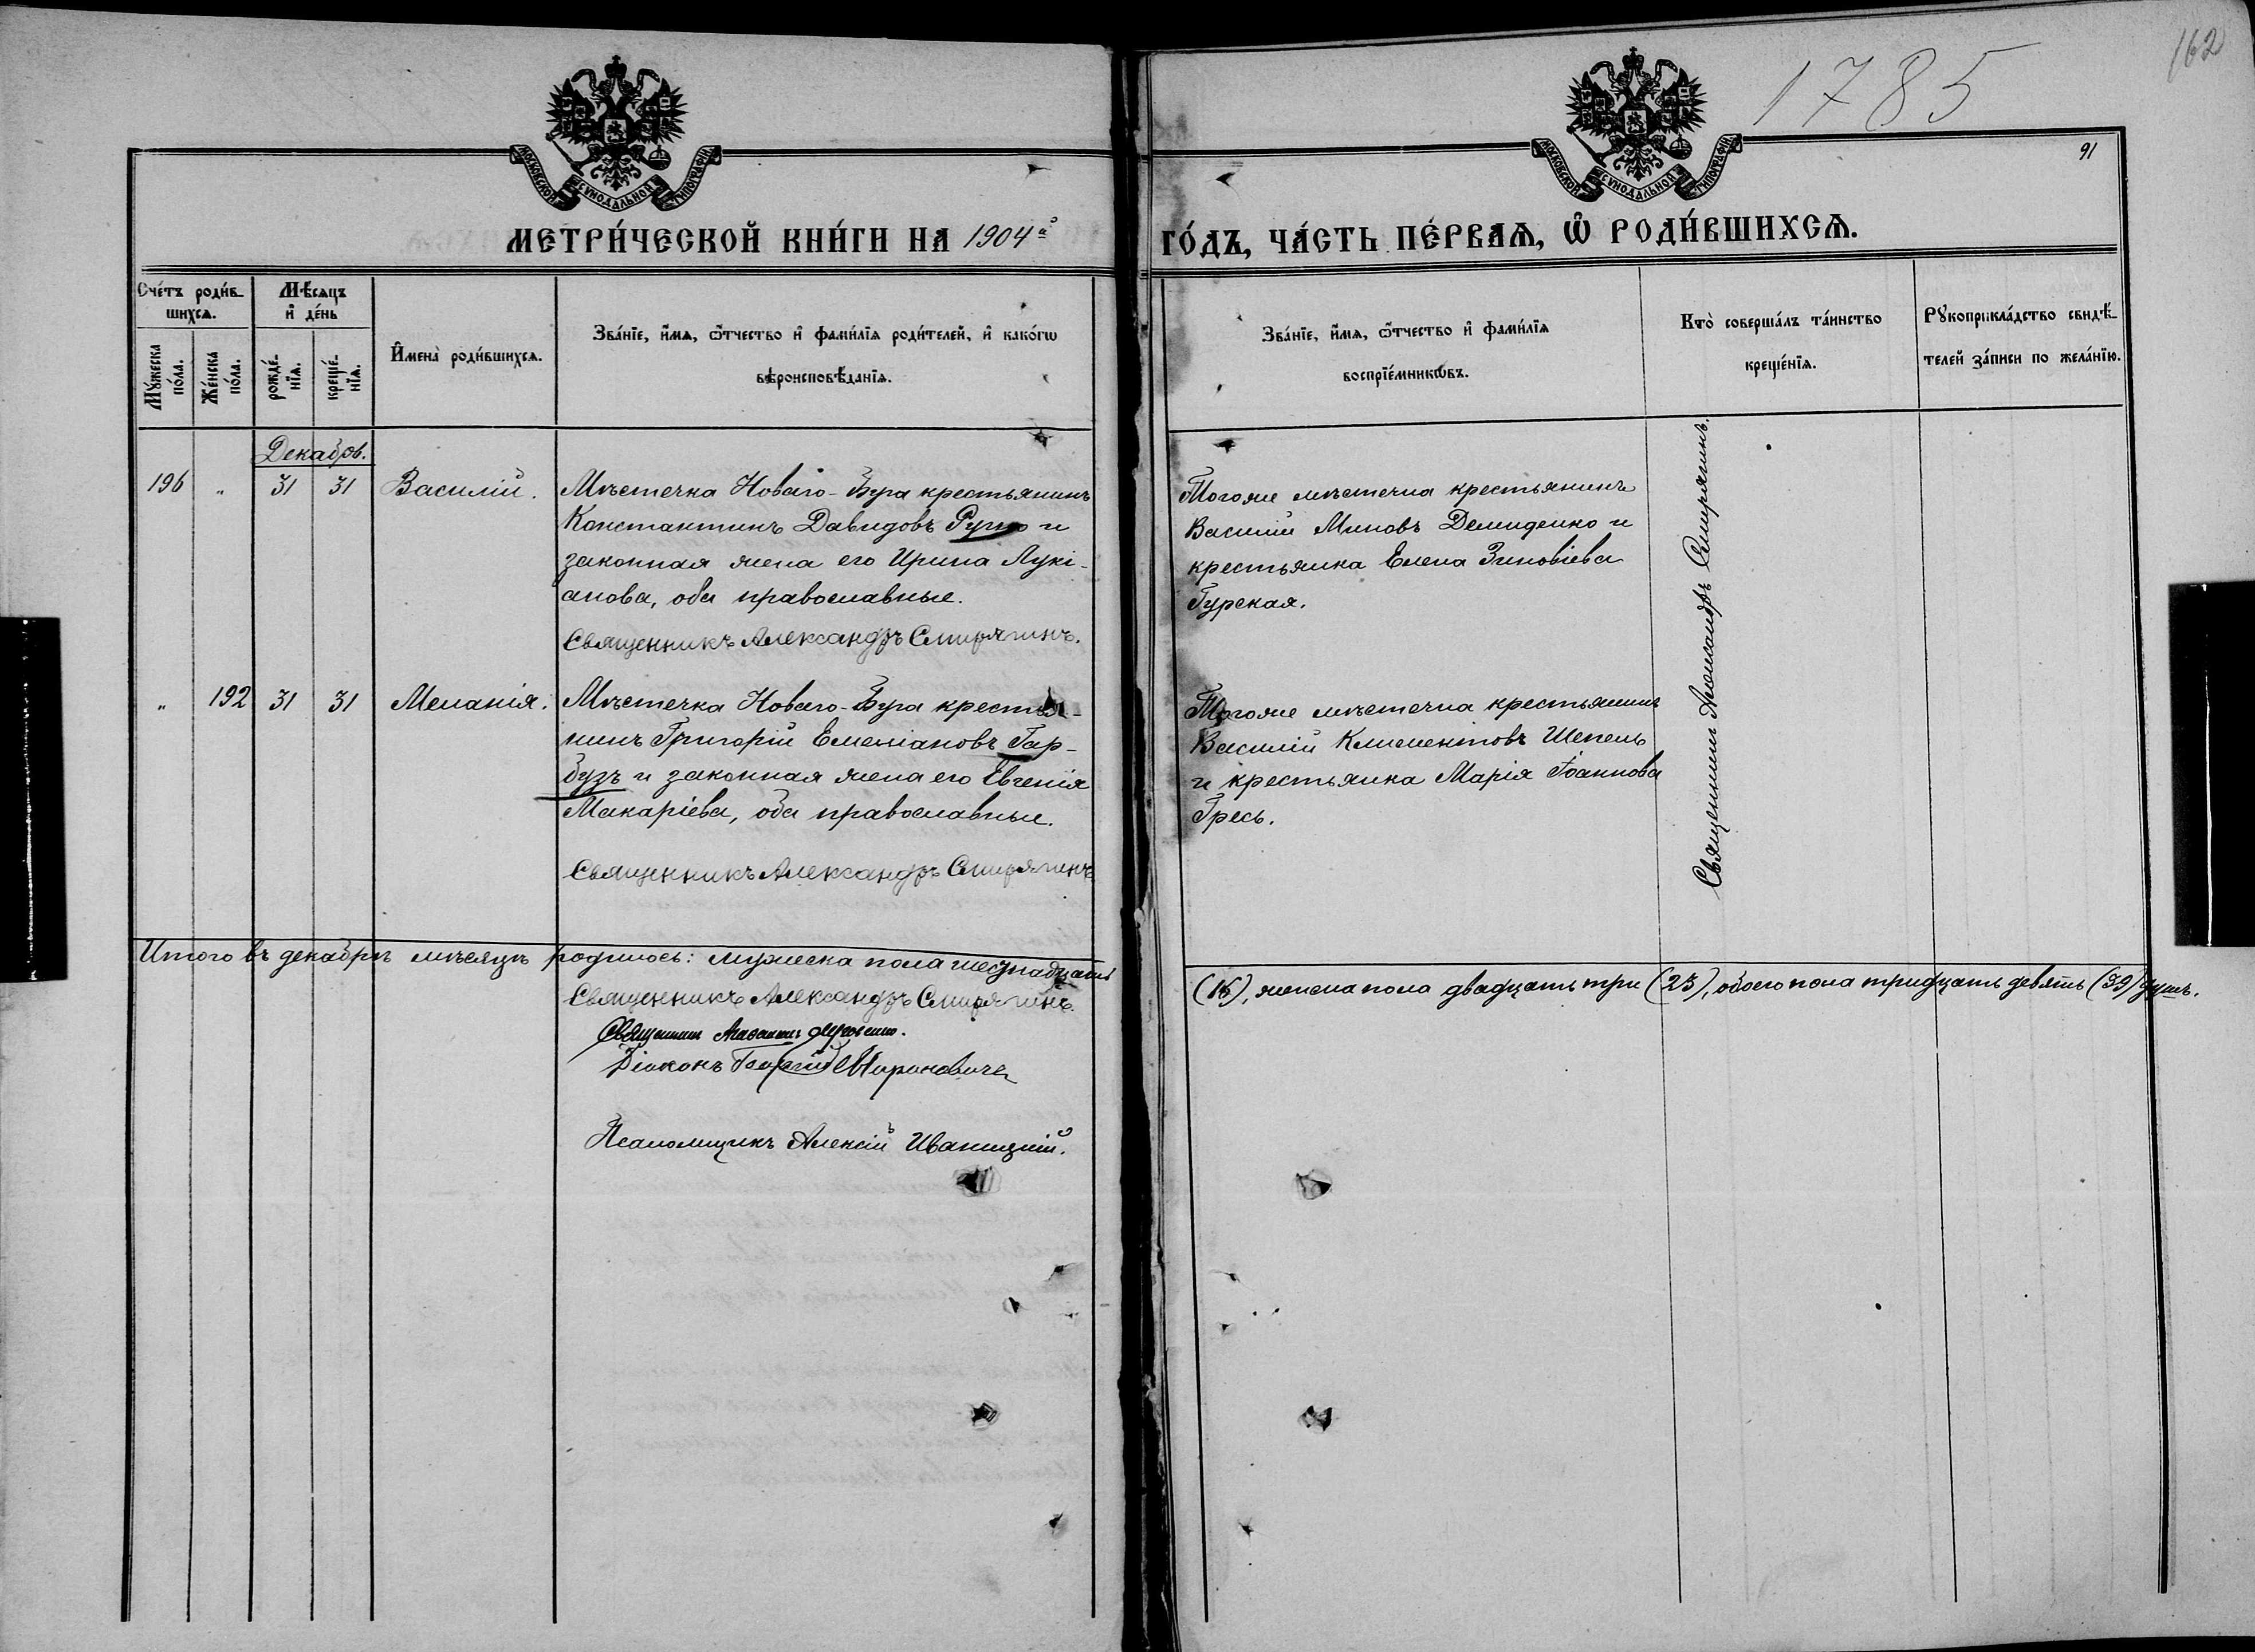 162
1785
91
МОСКОВСКОЙ СѴНОДАЛЬНОЙ ТИПОГРАФІИ
МОСКОВСКОЙ СѴНОДАЛЬНОЙ ТИПОГРАФІИ
МЕТРИ́ЧЕСКОЙ КНИ́ГИ НА 1904й
ГО́ДЪ, ЧА́СТЬ ПЕ́РВАѦ, Ѽ РОДИ́ВШИХСѦ.
Сче́тъ роди́в-
шихсѧ.
Мꙋ́жеска
по́ла.
Же́нска
по́ла.
Мѣ́сѧцъ
и҆ де́нь
рожде́-
нїѧ.
креще́-
нїѧ.
И҆мена̀ роди́вшихсѧ.
Зва́нїе, и҆́мѧ, ѻ҆́тчество и҆ фами́лїѧ роди́телей, и҆ како́гѡ
вѣроисповѣ́данїѧ.
Зва́нїе, и҆́мѧ, ѻ҆́тчество и҆ фами́лїѧ
воспрїе́мникѡвъ.
Кто̀ соверша́лъ та́инство
креще́нїѧ.
Рꙋкоприкла́дство свидѣ́-
телей за́писи по жела́нїю.
Декабрь.
196 " 31 31 Василій.
Мѣстечка Новаго-Буга крестьянинъ
Константинъ Давидовъ и
законная жена его Ирина Лукі-
анова, оба православные.
Священникъ Александръ Смирягинъ.
Тогоже мѣстечка крестьянинъ
Василій Миновъ Демиденко и
крестьянка Елена Зиновіева
Гурская.
Священникъ Александръ Смирягинъ.
" 192 31 31 Меланія.
Мѣстечка Новаго-Буга крестья-
нинъ Григорій Емеліановъ Гар-
бузъ и законная жена его Евгенія
Макаріева, оба православные.
Священникъ Александръ Смирягинъ
Тогоже мѣстечка крестьянинъ
Василій Климентовъ Шепель
и крестьянка Марія Іоаннова
Гресь.
Итого въ декабрѣ мѣсяцѣ родилось: мужеска пола шестнадцать
(16), женска пола двадцать три (23), обоего пола тридцать девять (39) душъ.
Священникъ Александръ Смирягинъ.
Священникъ
Діаконъ Георгій Мироновичъ
Псаломщикъ Алексій Иваницкій.